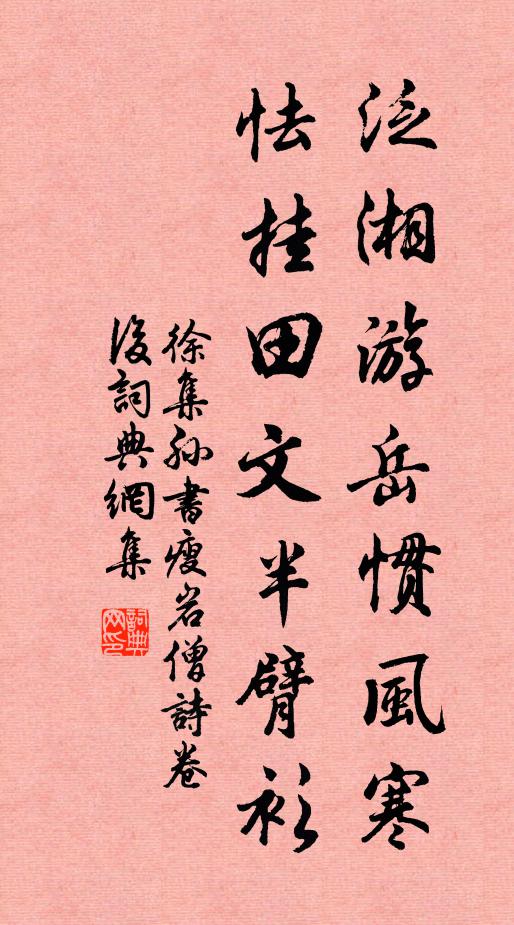 泛湘游岳慣風寒
怯挂田文半臂衫
徐集孙書瘦岩僧詩卷
後詞典網集
詞典网印